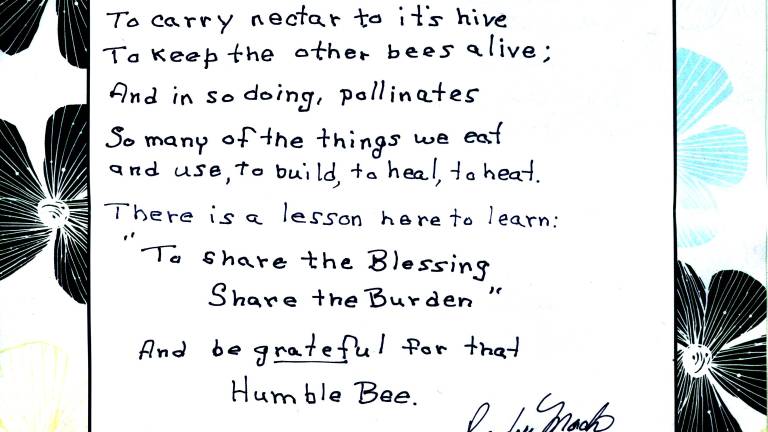 To carry nectar to it's hive
To keep the other bees alive;
And in so doing, pollinates
So many of the things we eat
and use, to build, to heal, to heat.
There is a lesson here to learn:
"To share the Blessing
Share the Burden"
And be grateful for that
Humble Bee.